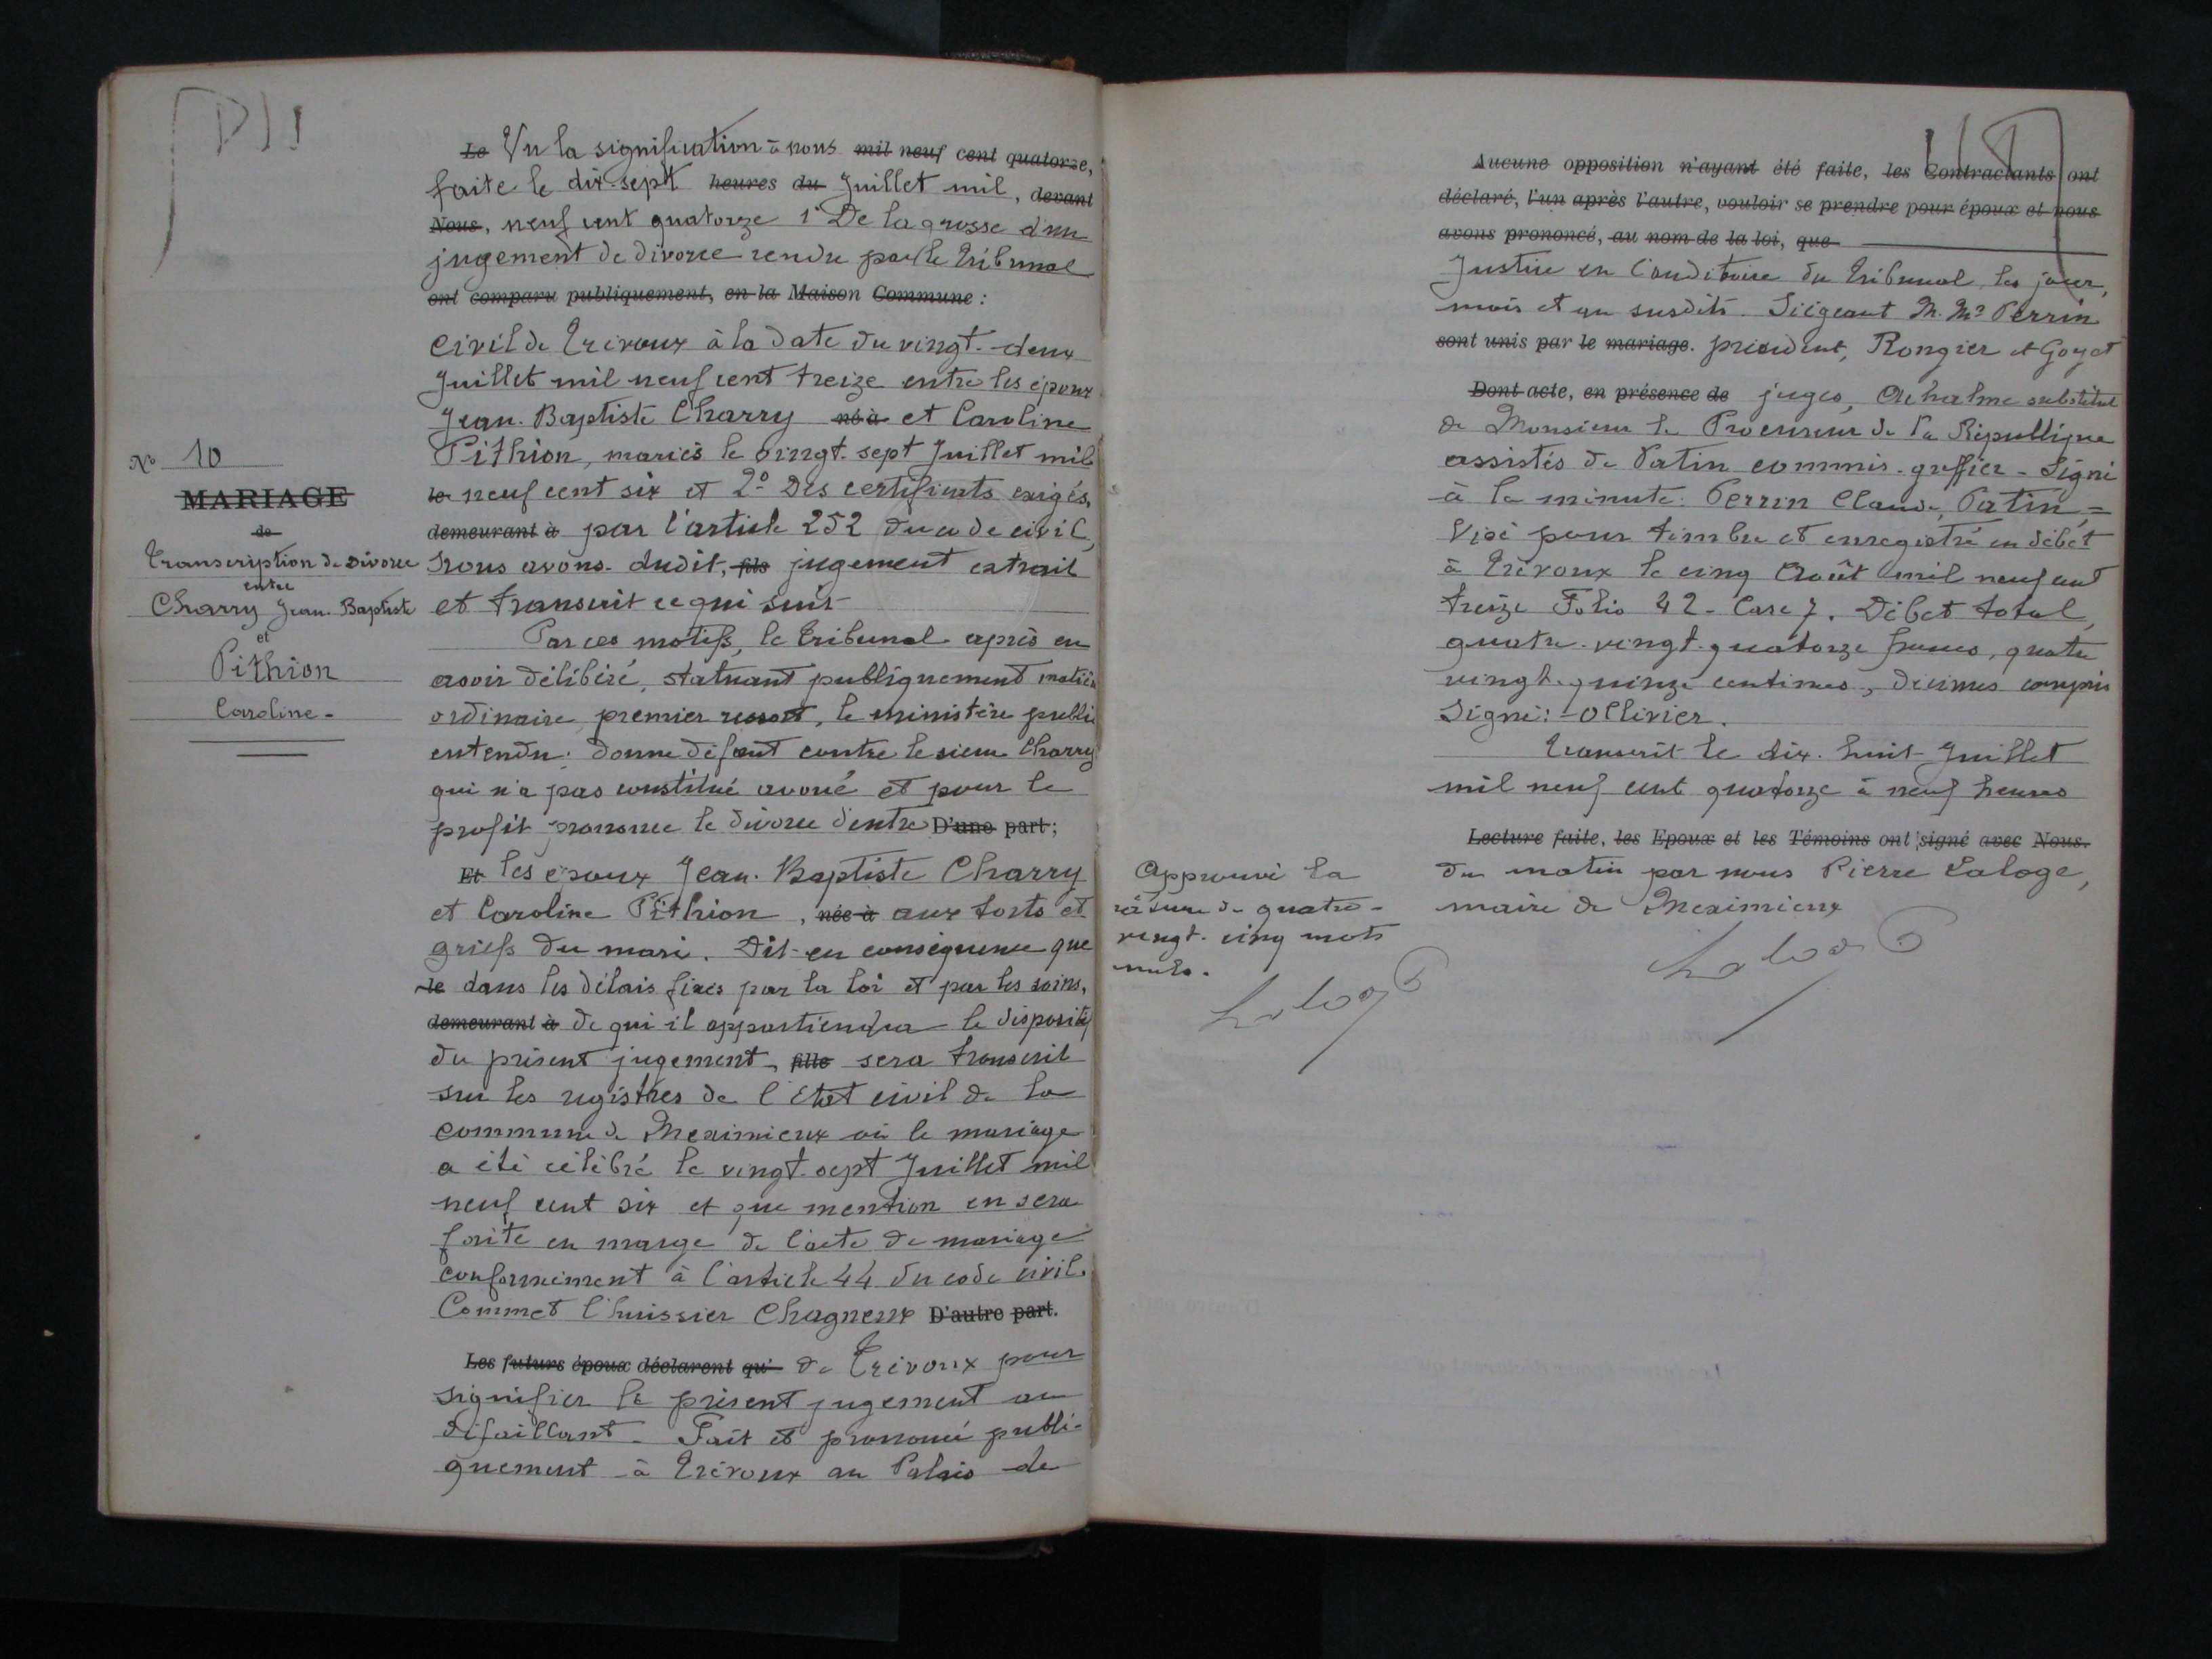 Le Vu la signification à nous mil neuf cent quatorze,
faite le dix-sept heures du Juillet mil, devant
Nous, neuf cent quatorze 1° De la grosse d'un
jugement de divorce rendu par le Tribunal
ont comparu publiquement, en la Maison Commune :
civil de Trévoux à la date du vingt-deux
Juillet mil neuf cent treize entre les époux
Jean-Baptiste Charry né à et Caroline
Pithion, mariés le vingt-sept Juillet mil
le neuf cent six et 2° Des certificats exigés,
demeurant à par l'article 252 du code civil,
Nous avons dudit, fils jugement extrait
et transcrit ce qui suit
Par ces motifs, le Tribunal après en
avoir délibéré, statuant publiquement matière
ordinaire premier ressort, le ministère public
entendu. Donne défaut contre le sieur Charry
qui n'a pas constitué avoué et pour le
profit prononce le divorce d'entre D'une part ;
Et les époux Jean-Baptiste Charry
et Caroline Pithion, née à aux torts et
griefs du mari. Dit en conséquence que
le dans les délais fixés par la loi et par les soins,
demeurant à de qui il appartiendra le dispositif
du présent jugement, fille sera transcrit
sur les registres de l'état civil de la
commune de Meximieux où le mariage
a été célébré le vingt-sept Juillet mil
neuf cent six et que mention en sera
faite en marge de l'acte de mariage
conformément à l'article 44 du code civil.
Commet l'huissier Chagneux D'autre part.
Les futurs époux déclarent qu' de Trévoux pour
signifier le présent jugement au
défaillant. Fait et prononcé publi-
quement à Trévoux au Palais de
N° 10
MARIAGE
de
Transcription de Divorce
entre
Charry Jean-Baptiste
et
Pithion
Caroline-
Aucune opposition n'ayant été faite, les Contractants ont
déclaré, l'un après l'autre, vouloir se prendre pour époux et nous
avons prononcé, au nom de la loi, que
Justice en l'auditoire du Tribunal, les jour,
mois et an susdits. Siégeant M. Mrs Perrin
sont unis par le mariage. président, Rongier et Goyet
Dont acte, en présence de juges, Achalme substitut
de Monsieur le Procureur de la République
assistés de Patin commis-greffier - Signé
à la minute : Perrin Claude, Patin, =
Visé pour timbre et enregistré en débet
à Trévoux le cinq Août mil neuf cent
treize Folio 42 - Case 7. Débet total,
quatre-vingt-quatorze francs, quatre
vingt-quinze centimes, décimes compris
Signé : - Ollivier.
Transcrit le dix-huit Juillet
mil neuf cent quatorze à neuf heures
Lecture faite, les Epoux et les Témoins ont signé avec Nous.
du matin par nous Pierre Laloge,
maire de Meximieux
Laloge
Approuvé la
râture de quatre-
vingt-cinq mots
nuls.
Laloge